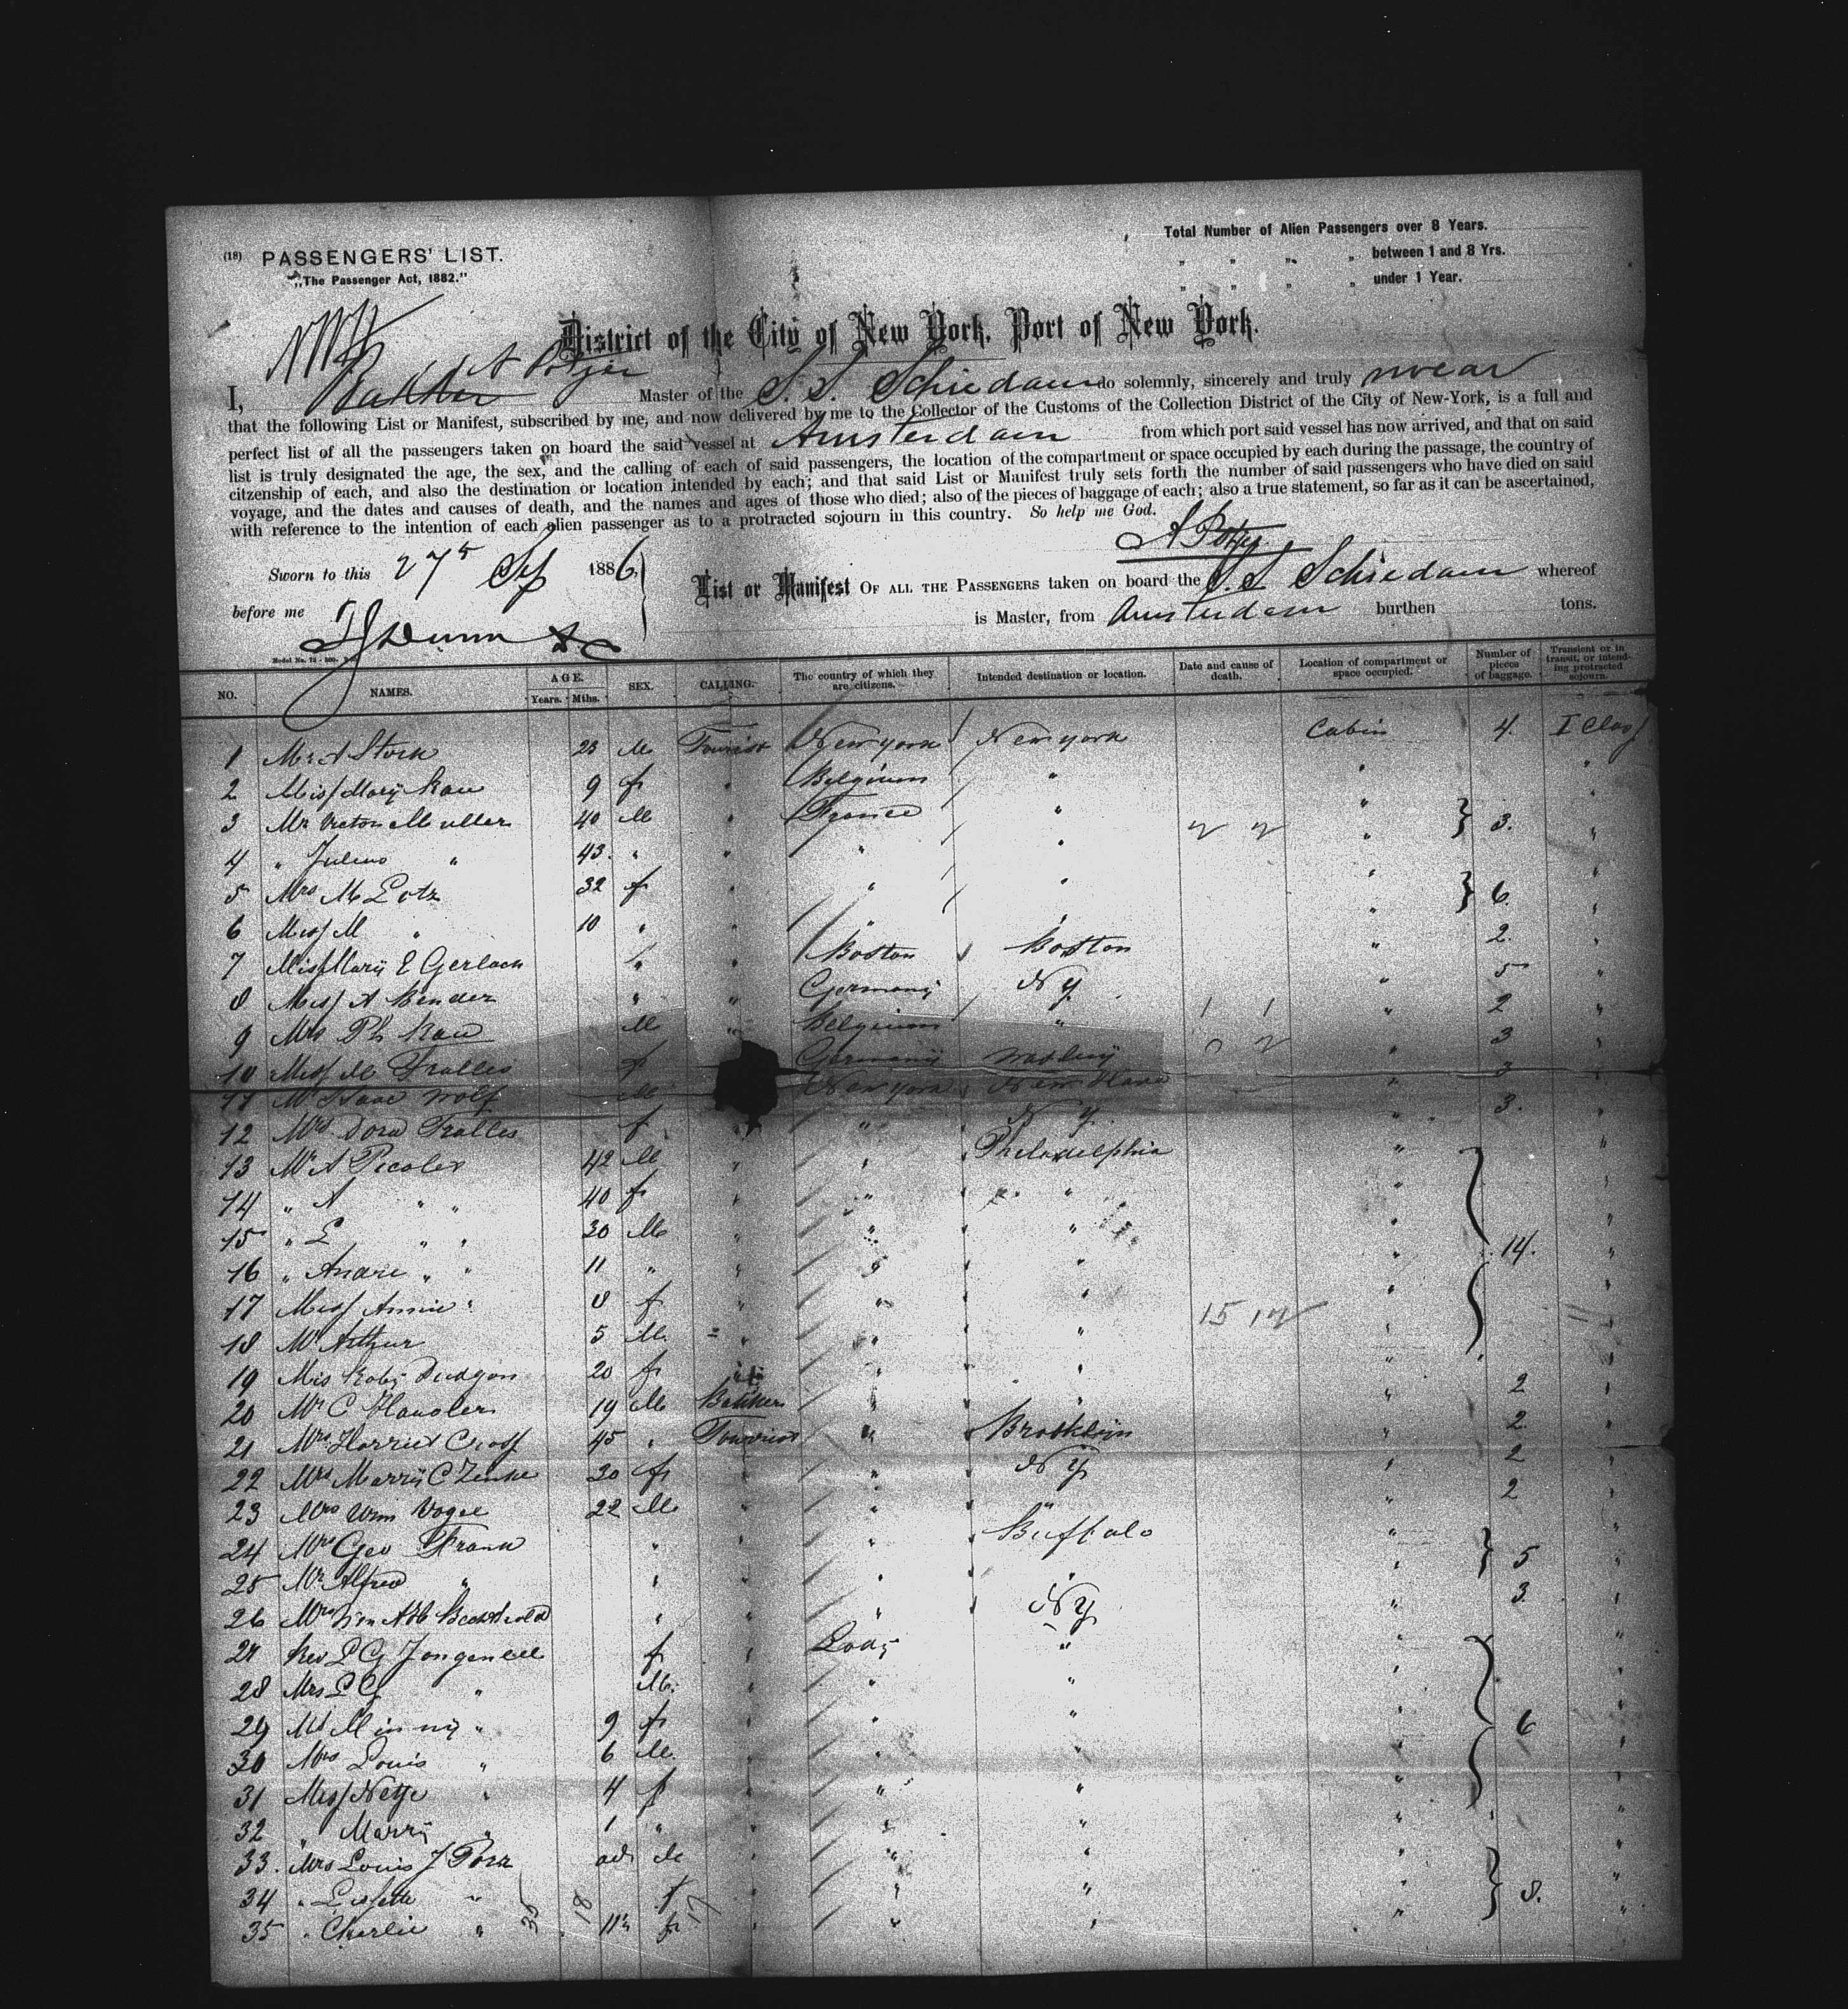 (18) PASSENGERS' LIST.
"The Passenger Act, 1882."
Total Number of Alien Passengers over 8 Years.
" " " " between 1 and 8 Yrs.
" " " " under 1 Year.
District of the City of New York, Port of New York.
I, Bakker A Potjer Master of the S. S. Schiedam do solemnly, sincerely and truly swear
that the following List or Manifest, subscribed by me, and now delivered by me to the Collector of the Customs of the Collection District of the City of New-York, is a full and
perfect list of all the passengers taken on board the said vessel at Amsterdam from which port said vessel has now arrived, and that on said
list is truly designated the age, the sex, and the calling of each of said passengers, the location of the compartment or space occupied by each during the passage, the country of
citzenship of each, and also the destination or location intended by each; and that said List or Manifest truly sets forth the number of said passengers who have died on said
voyage, and the dates and causes of death, and the names and ages of those who died; also of the pieces of baggage of each; also a true statement, so far as it can be ascertained,
with reference to the intention of each alien passenger as to a protracted sojourn in this country. So help me God.
A Potjer
Sworn to this 27th Sep 1886.
before me
List or Manifest OF ALL THE PASSENGERS taken on board the S. S Schiedam whereof
is Master, from Amsterdam burthen tons.
NO. NAMES. AGE. Years. Mths. SEX. CALLING. The country of which they are citizens. Intended destination or location. Date and cause of death. Location of compartment or space occupied. Number of pieces of baggage. Transient or in transit, or intending protracted sojourn.
1 Mr A Stork 23 M Tourist New york New york Cabin 4. I Class
2 Miss Mary Rau 9 f " Belgium " " "
3 Mr Victor Muller 40 M " France " " 3. "
4 " Julius " 43. " " " " " "
5 Mrs M Lotz 32 f " " " " 6. "
6 Miss M " 10 " " " " " "
7 Miss Mary E Gerlach " " Boston Boston " 2. "
8 Miss A Bender " " Germany N Y. " 5 "
9 Mrs Ph Rau M " Belgium " " 2 "
10 Miss M Tralles f Germany " 3 "
11 Mr Isaac Wolf M New york New Have " 3 "
12 Mrs Dora Tralles f " " N Y. " 3. "
13 Mr A Picoler 42 M " " Philadelphia " "
14 " A " " 40 f " " " " "
15 " E " " 30 M " " " " 14. "
16 " Andre " " 11 " " " " " "
17 Miss Annie " 8 f " " " " "
18 Mr Arthur 5 M. " " " " "
19 Mis Roby Dudgon 20 f " " " " 2 "
20 Mr C Handler 19 M " " " 2. "
21 Mrs Harriet Cross 45 " Tourist " Brooklijn " 2 "
22 Mrs Marrij C Zenke 30 f " " N Y " 2 "
23 Mrs Wm Vogel 22 M " " " " "
24 Mrs Geo Frank " " " Buffalo " 5 "
25 Mr Alfred " " " " " " "
26 " " " N Y " 3. "
27 Rev L G Jongeneel f " " " "
28 Mrs L G " M. " " " " "
29 Minny " 9 f " " " " 6 "
30 Mrs Louis " 6 M. " " " " "
31 Miss Netje " 4 f " " " " "
32 " Marry " 1 " " " " " "
33. Mrs Louis J Porr M " " " " 8. "
34 " " f " " " " "
35 " Charlie " 11 f " " " " "